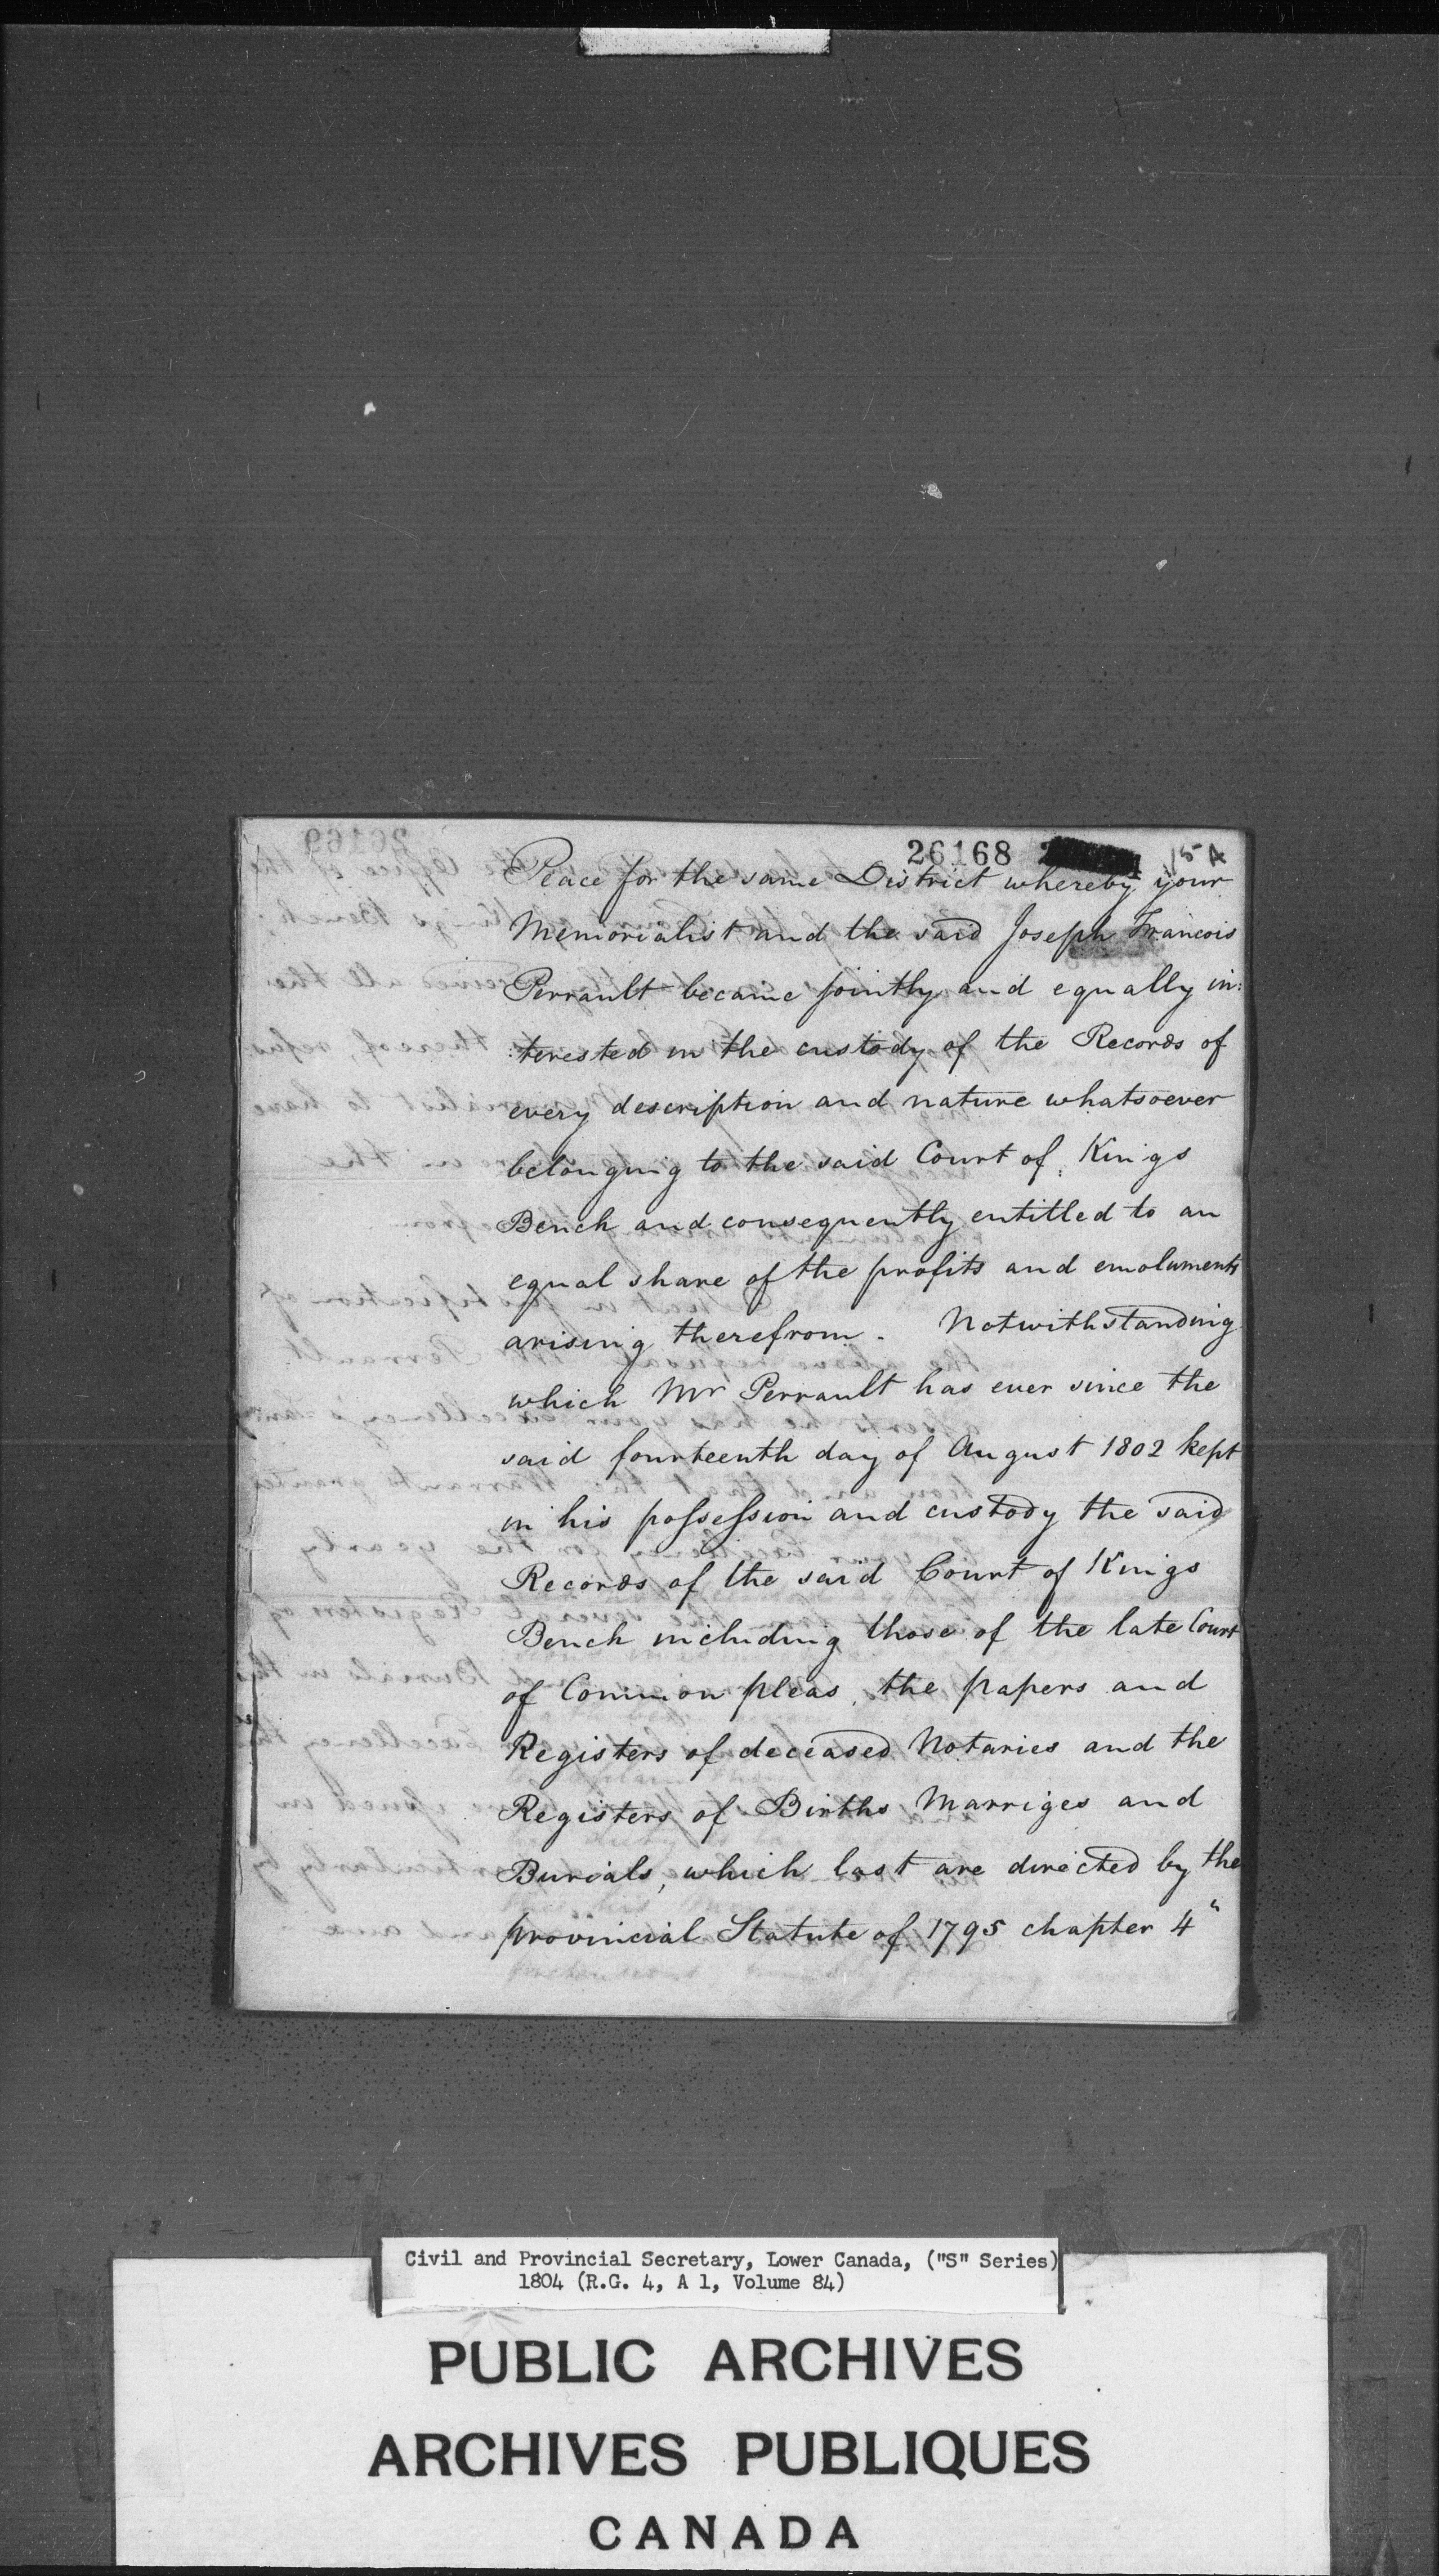 26168
15A
Peace for the same District whereby your
Memorialist and the said Joseph Francois
Perrault became jointly and equally in:
:terested in the custody of the Records of
every description and nature whatsoever
belonging to the said Court of Kings
Bench and consequently entitled to an
equal share of the profits and emoluments
arising therefrom. Notwithstanding
which Mr Perrault has ever since the
said fourteenth day of August 1802 kept
in his possession and custody the said
Records of the said Court of Kings
Bench including those of the late Court
of Common pleas, the papers and
Registers of deceased Notaries and the
Registers of Births Marriges and
Burials, which last are directed by the
provincial Statute of 1795 chapter 4"
Civil and Provincial Secretary, Lower Canada, ("S" Series)
1804 (R.G. 4, A 1, Volume 84)
PUBLIC ARCHIVES
ARCHIVES PUBLIQUES
CANADA